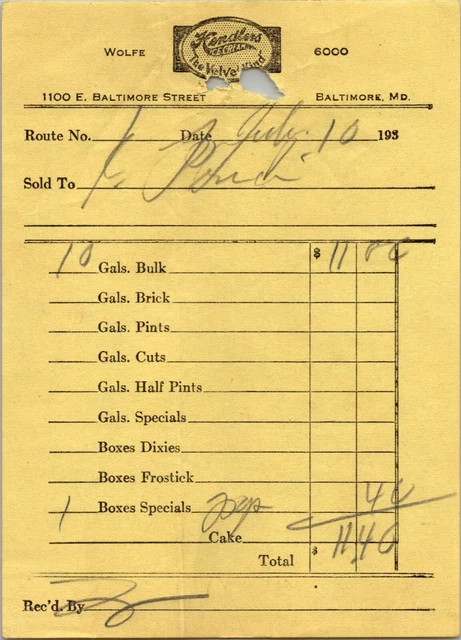 WOLFE Hendlers 6000
ICE CREAM
"The Velvet Kind"
1100 E. BALTIMORE STREET BALTIMORE, MD.
Route No. Date July 10 193
Sold To
10 Gals. Bulk $ 11 00
Gals. Brick
Gals. Pints
Gals. Cuts
Gals. Half Pints
Gals. Specials
Boxes Dixies
Boxes Frostick
1 Boxes Specials 40
Cake
Total $ 11 40
Rec'd. By